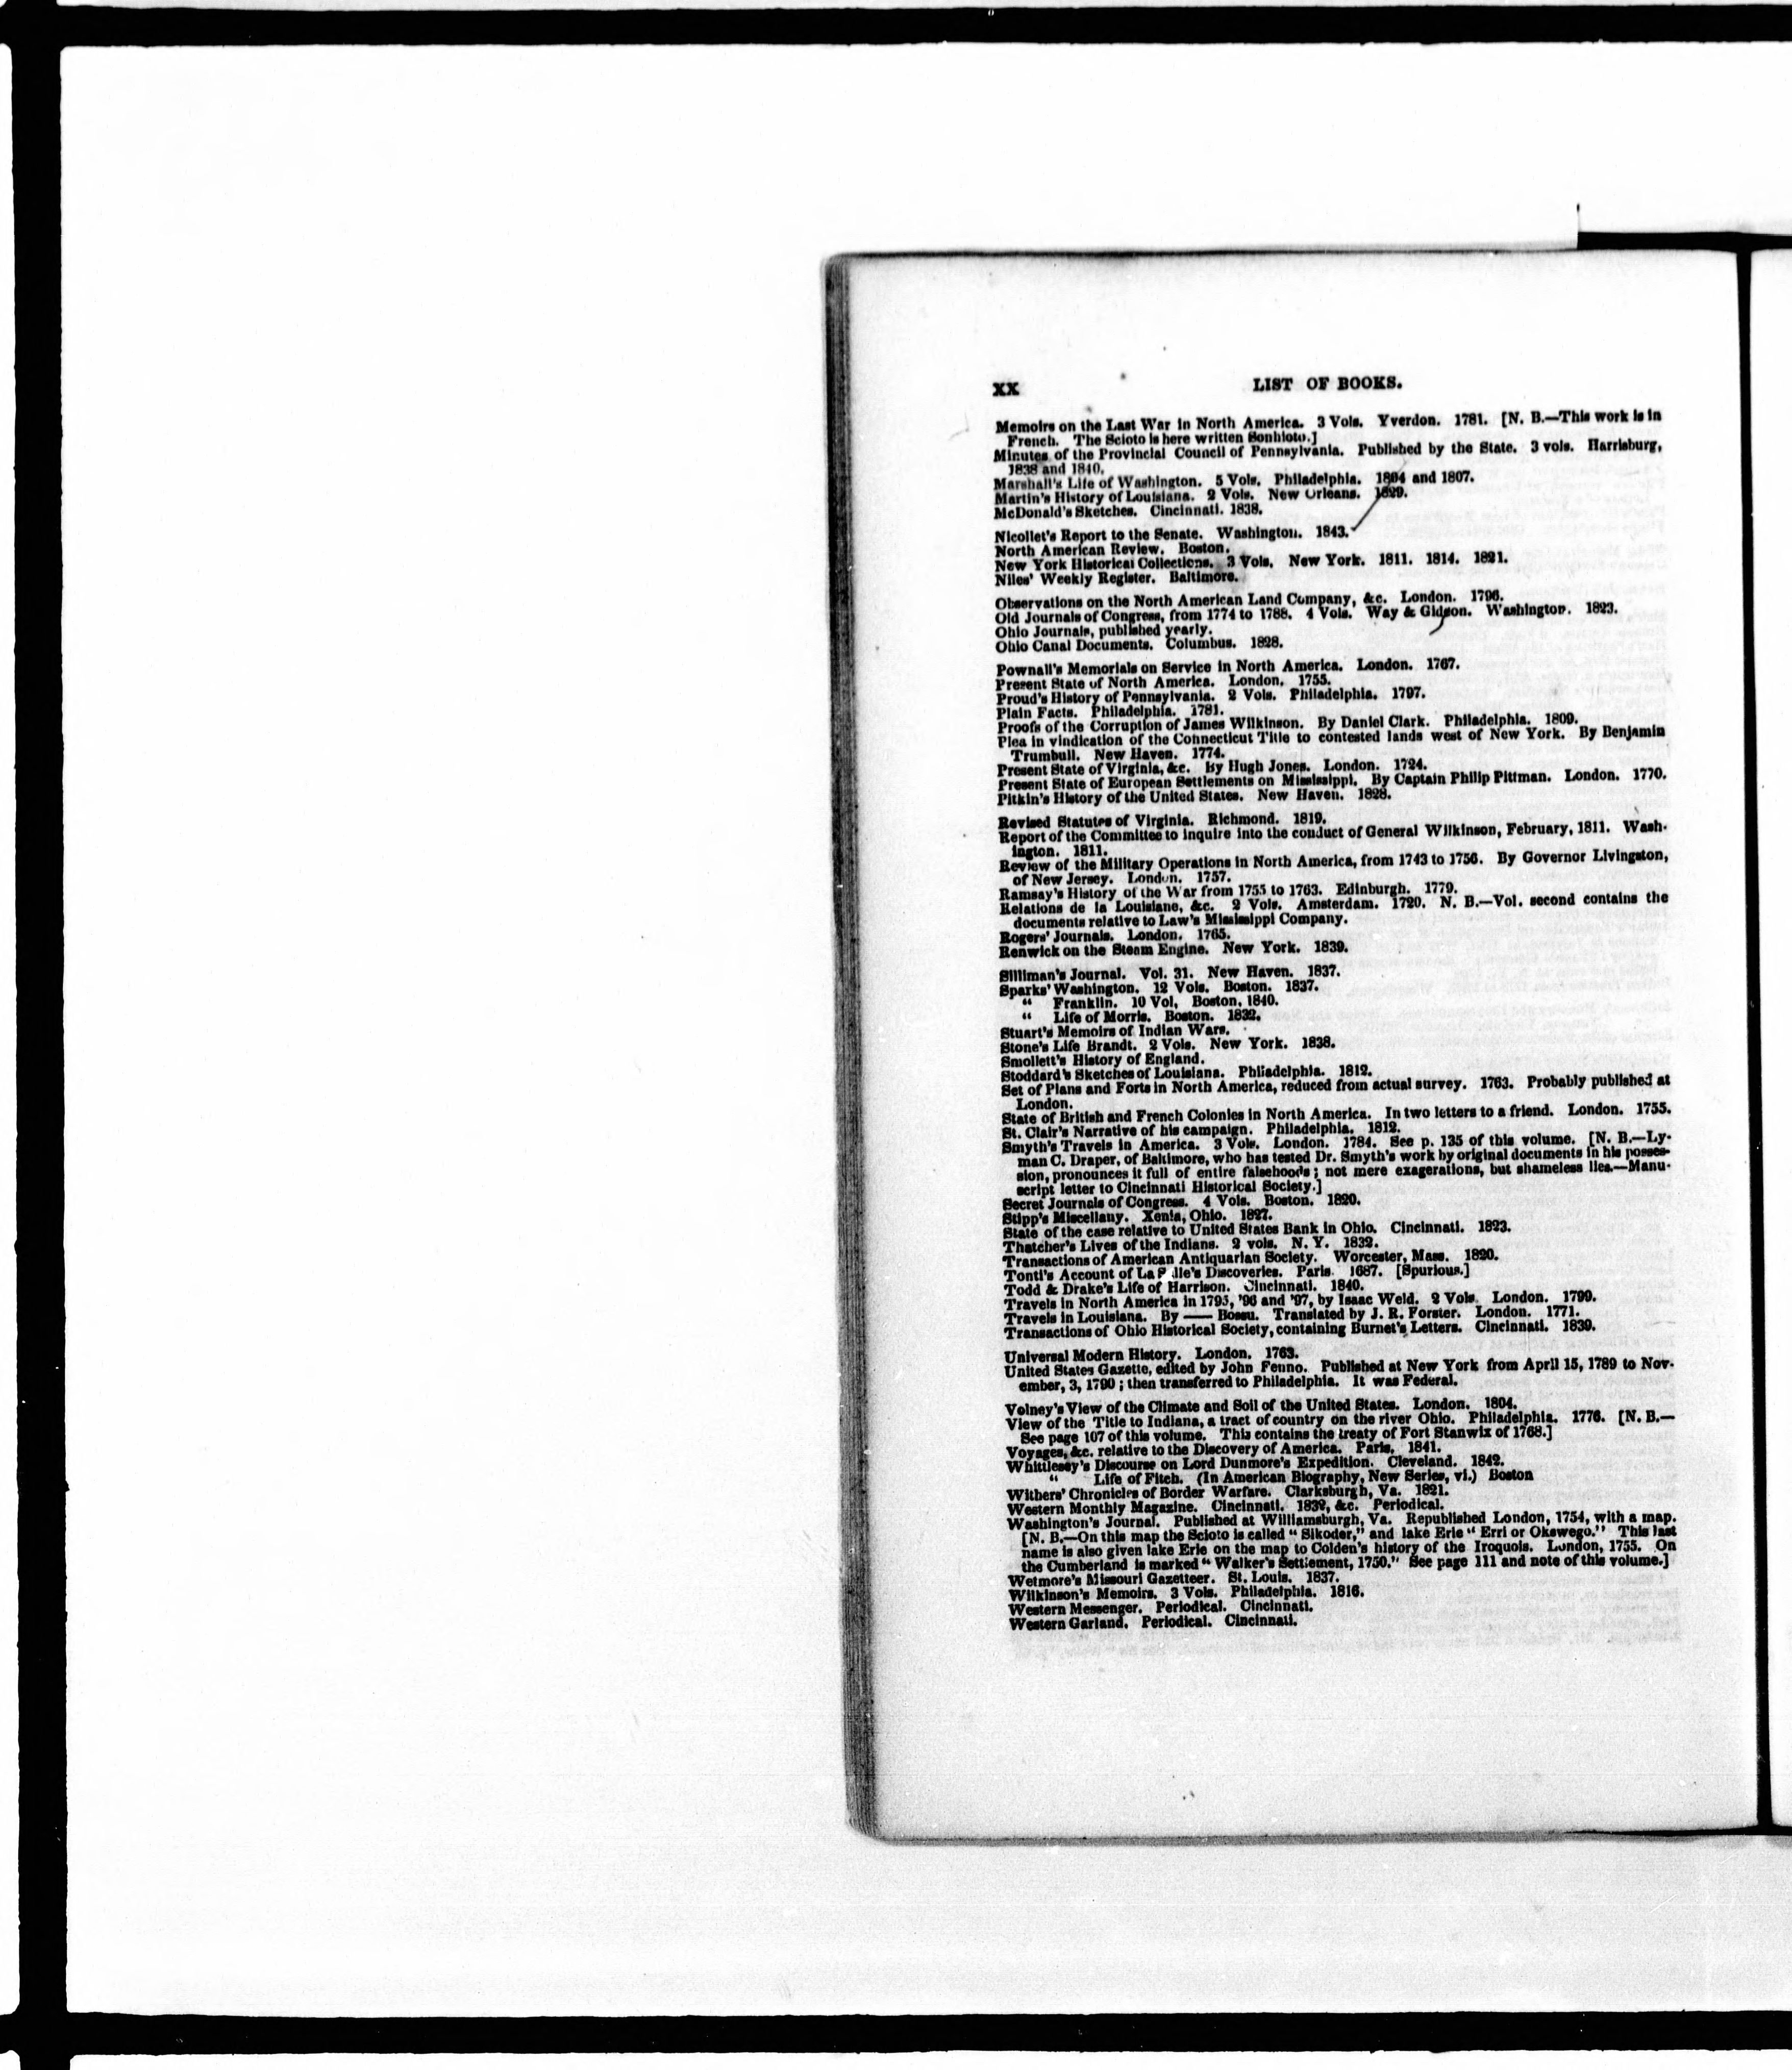 XX LIST OF BOOKS.
Memoirs on the Last War in North America. 3 Vols. Yverdon. 1781. [N. B.—This work is in
French. The Scioto is here written Sonhioto.]
Minutes of the Provincial Council of Pennsylvania. Published by the State. 3 vols. Harrisburg,
1838 and 1840.
Marshall's Life of Washington. 5 Vols. Philadelphia. 1804 and 1807.
Martin's History of Louisiana. 2 Vols. New Orleans. 1829.
McDonald's Sketches. Cincinnati. 1838.
Nicollet's Report to the Senate. Washington. 1843.
North American Review. Boston.
New York Historical Collections. 3 Vols. New York. 1811. 1814. 1821.
Niles' Weekly Register. Baltimore.
Observations on the North American Land Company, &c. London. 1796.
Old Journals of Congress, from 1774 to 1788. 4 Vols. Way & Gideon. Washington. 1823.
Ohio Journals, published yearly.
Ohio Canal Documents. Columbus. 1828.
Pownall's Memorials on Service in North America. London. 1767.
Present State of North America. London. 1755.
Proud's History of Pennsylvania. 2 Vols. Philadelphia. 1797.
Plain Facts. Philadelphia. 1781.
Proofs of the Corruption of James Wilkinson. By Daniel Clark. Philadelphia. 1809.
Plea in vindication of the Connecticut Title to contested lands west of New York. By Benjamin
Trumbull. New Haven. 1774.
Present State of Virginia, &c. By Hugh Jones. London. 1724.
Present State of European Settlements on Mississippi. By Captain Philip Pittman. London. 1770.
Pitkin's History of the United States. New Haven. 1828.
Revised Statutes of Virginia. Richmond. 1819.
Report of the Committee to inquire into the conduct of General Wilkinson, February, 1811. Wash-
ington. 1811.
Review of the Military Operations in North America, from 1743 to 1756. By Governor Livingston,
of New Jersey. London. 1757.
Ramsay's History of the War from 1755 to 1763. Edinburgh. 1779.
Relations de la Louisiane, &c. 2 Vols. Amsterdam. 1720. N. B.—Vol. second contains the
documents relative to Law's Mississippi Company.
Rogers' Journals. London. 1765.
Renwick on the Steam Engine. New York. 1839.
Silliman's Journal. Vol. 31. New Haven. 1837.
Sparks' Washington. 12 Vols. Boston. 1837.
" Franklin. 10 Vol. Boston. 1840.
" Life of Morris. Boston. 1832.
Stuart's Memoirs of Indian Wars.
Stone's Life Brandt. 2 Vols. New York. 1838.
Smollett's History of England.
Stoddard's Sketches of Louisiana. Philadelphia. 1812.
Set of Plans and Forts in North America, reduced from actual survey. 1763. Probably published at
London.
State of British and French Colonies in North America. In two letters to a friend. London. 1755.
St. Clair's Narrative of his campaign. Philadelphia. 1812.
Smyth's Travels in America. 3 Vols. London. 1784. See p. 135 of this volume. [N. B.—Ly-
man C. Draper, of Baltimore, who has tested Dr. Smyth's work by original documents in his posses-
sion, pronounces it full of entire falsehoods; not mere exagerations, but shameless lies.—Manu-
script letter to Cincinnati Historical Society.]
Secret Journals of Congress. 4 Vols. Boston. 1820.
Stipp's Miscellany. Xenia, Ohio. 1827.
State of the case relative to United States Bank in Ohio. Cincinnati. 1823.
Thatcher's Lives of the Indians. 2 vols. N. Y. 1832.
Transactions of American Antiquarian Society. Worcester, Mass. 1820.
Tonti's Account of La Salle's Discoveries. Paris. 1687. [Spurious.]
Todd & Drake's Life of Harrison. Cincinnati. 1840.
Travels in North America in 1795, '96 and '97, by Isaac Weld. 2 Vols. London. 1799.
Travels in Louisiana. By —— Bossu. Translated by J. R. Forster. London. 1771.
Transactions of Ohio Historical Society, containing Burnet's Letters. Cincinnati. 1839.
Universal Modern History. London. 1763.
United States Gazette, edited by John Fenno. Published at New York from April 15, 1789 to Nov-
ember, 3, 1790; then transferred to Philadelphia. It was Federal.
Volney's View of the Climate and Soil of the United States. London. 1804.
View of the Title to Indiana, a tract of country on the river Ohio. Philadelphia. 1776. [N. B.—
See page 107 of this volume. This contains the treaty of Fort Stanwix of 1768.]
Voyages, &c. relative to the Discovery of America. Paris. 1841.
Whittlesey's Discourse on Lord Dunmore's Expedition. Cleveland. 1842.
" Life of Fitch. (In American Biography, New Series, vi.) Boston
Withers' Chronicles of Border Warfare. Clarksburgh, Va. 1821.
Western Monthly Magazine. Cincinnati. 1832, &c. Periodical.
Washington's Journal. Published at Williamsburgh, Va. Republished London, 1754, with a map.
[N. B.—On this map the Scioto is called "Sikoder," and lake Erie "Erri or Okswego." This last
name is also given lake Erie on the map to Colden's history of the Iroquois. London, 1755. On
the Cumberland is marked "Walker's Settlement, 1750." See page 111 and note of this volume.]
Wetmore's Missouri Gazetteer. St. Louis. 1837.
Wilkinson's Memoirs. 3 Vols. Philadelphia. 1816.
Western Messenger. Periodical. Cincinnati.
Western Garland. Periodical. Cincinnati.